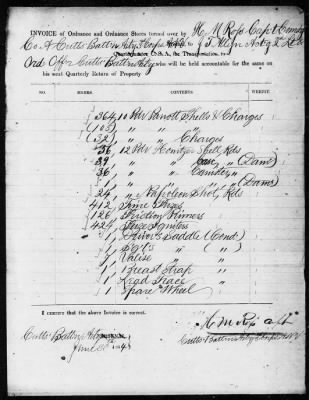 INVOICE of Ordnance and Ordnance Stores turned over by H. M. Ross Capt Comdg
Co A Cutts Battn Arty to J. T. Allyn Actg 2d Lt
Ord Offr Cutts Battn Arty who will be held accountable for the same on
his next Quarterly Return of Property
NO. BOXES. CONTENTS WEIGHT.
364 10 Pdr Parrott Shells & Charges
(103) " " "
(32) " " Charges
36 12 Pdr Howitzer Shell, Rds
39 " " case " (Dam)
36 " " Canister "
1 " " " (Dam)
24 " Napoleon Shot, Rds
412 Time Fuzes
126 Friction Primers
424 Fuze Igniters
1 Driver's Saddle (Cond)
1 " " ( " )
1 Valise "
1 Breast Strap "
1 Lead Trace "
1 Spare Wheel "
I CERTIFY that the above Invoice is correct.
H M Ross Capt
Cutts Battn Arty
June 186
Cutts' Battn Arty